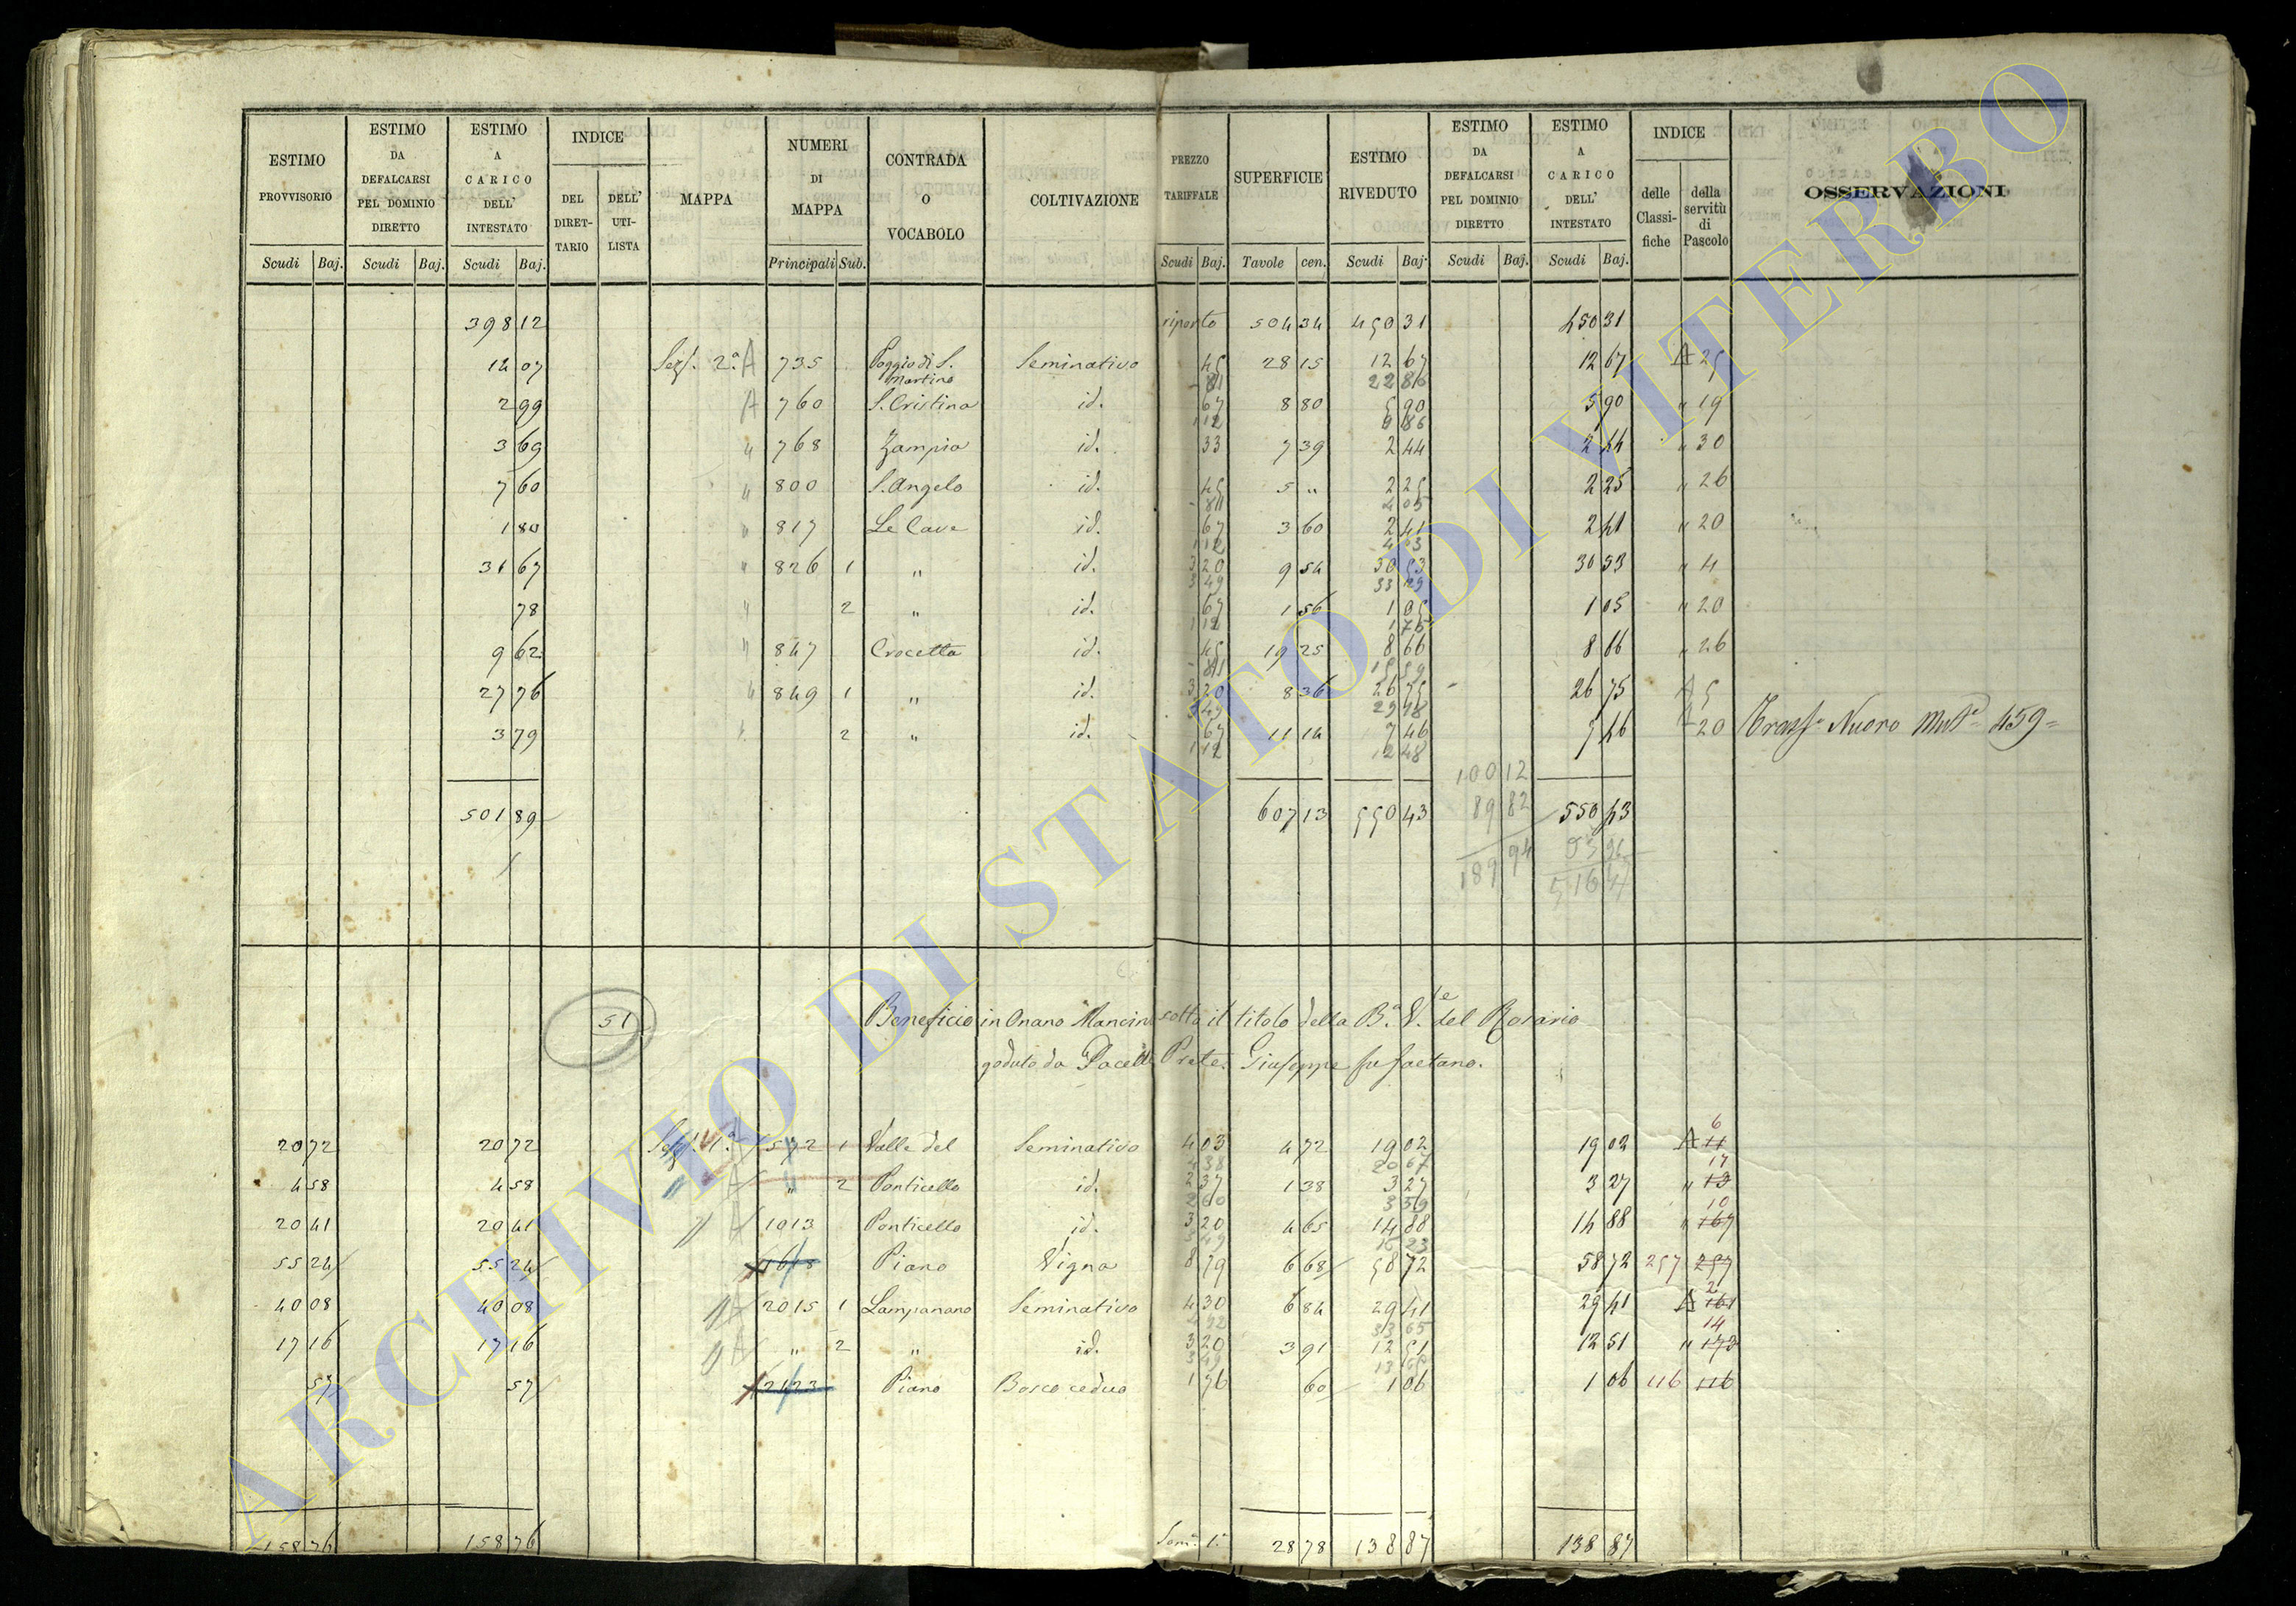 ESTIMO PROVVISORIO | ESTIMO DA DEFALCARSI PEL DOMINIO DIRETTO | ESTIMO A CARICO DELL' INTESTATO | INDICE | MAPPA | NUMERI DI MAPPA | CONTRADA O VOCABOLO | COLTIVAZIONE | PREZZO TARIFFALE | SUPERFICIE | ESTIMO RIVEDUTO | ESTIMO DA DEFALCARSI PEL DOMINIO DIRETTO | ESTIMO A CARICO DELL' INTESTATO | INDICE | OSSERVAZIONI
DEL DIRET-TARIO | DELL' UTI-LISTA | delle Classi-fiche | della servitù di Pascolo
Scudi | Baj. | Scudi | Baj. | Scudi | Baj. | Principali | Sub. | Scudi | Baj. | Tavole | cen. | Scudi | Baj. | Scudi | Baj. | Scudi | Baj.
398 12 riporto 504 34 450 31 450 31
14 07 Sez. 2.ª A 735 Poggio di S. Martino Seminativo 45 28 15 12 67 12 67 A 25
81 22 86
2 99 A 760 S. Cristina id. 67 8 80 5 90 5 90 " 19
1 12 9 86
3 69 " 768 Zampia id. 33 7 39 2 44 2 44 " 30
7 60 " 800 S. Angelo id. 45 5 " 2 25 2 25 " 26
81 4 05
1 80 " 817 Le Cave id. 67 3 60 2 41 2 41 " 20
1 12 4 03
31 67 " 826 1 " id. 3 20 9 54 30 53 30 53 " 4
3 49 33 29
78 " 2 " id. 67 1 56 1 05 1 05 " 20
1 12 1 75
9 62 " 847 Crocetta id. 45 19 25 8 66 8 66 " 26
81 15 59
27 76 " 849 1 " id. 3 20 8 36 26 75 26 75 A 5
3 49 29 18
3 79 " 2 " id. 67 11 14 7 46 7 46 20 Trasf. Nuovo 459
1 12 12 48
100 12
501 89 607 13 550 43 89 82 550 43
189 94 516 4
51 Beneficio in Onano Mancini sotto il titolo della B.ª V.e del Rosario
goduto da Pacelli Prete Giuseppe fu Gaetano.
6
20 72 20 72 Sez. 1.ª 572 1 Valle del Seminativo 4 03 4 72 19 02 19 02 A 11
4 38 20 67 17
4 58 4 58 " A " 2 Ponticello id. 2 37 1 38 3 27 3 27 " 13
2 60 3 59 10
20 41 20 41 " A 1013 Ponticello id. 3 20 4 65 14 88 14 88 " 167
3 49 16 23
55 24 55 24 1618 Piano Vigna 8 79 6 68 58 72 58 72 257 257
2
40 08 40 08 " A 2015 1 Lampanano Seminativo 4 30 6 84 29 41 29 41 A 161
4 92 33 65 14
17 16 17 16 " A " 2 " id. 3 20 3 91 12 51 12 51 " 173
3 49 13 65
57 57 2423 Piano Bosco ceduo 1 76 60 1 06 1 06 116 116
158 76 158 76 Som. 1. 28 78 138 87 138 87
ARCHIVIO DI STATO DI VITERBO